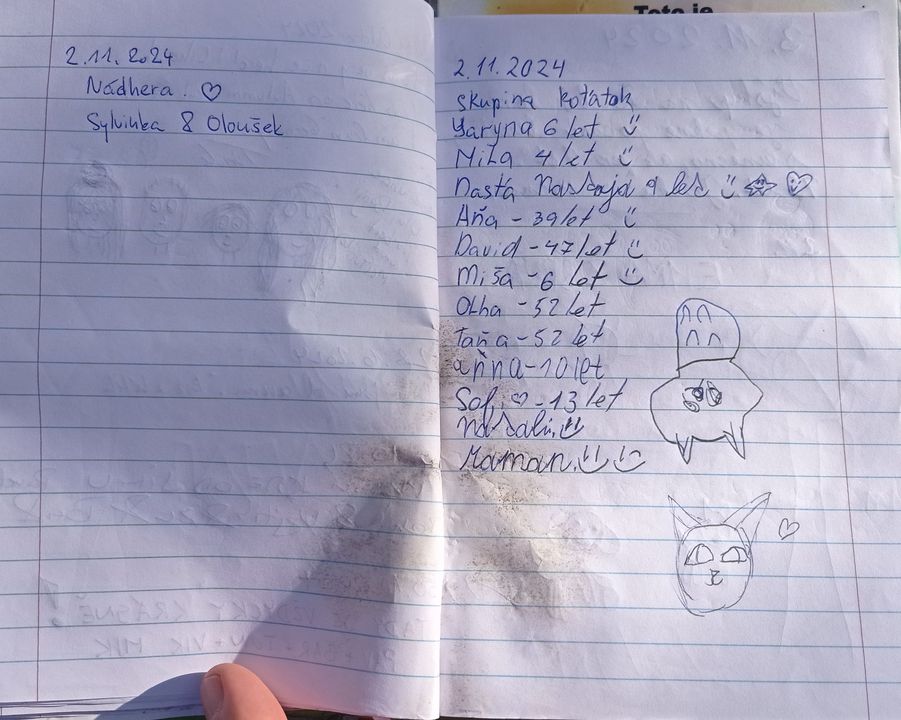 2.11.2024
Nádhera. ♡
Sylvinka & Oloušek
Toto je
2.11.2024
skupina koťátek
Yaryna 6 let
Mila 4 let
Nasťa Nastaja 9 let
Aňa - 39 let
David - 47 let
Miša - 6 let
Olha - 52 let
Taňa - 52 let
aňna - 10 let
Sofi ♡ - 13 let
Natali.